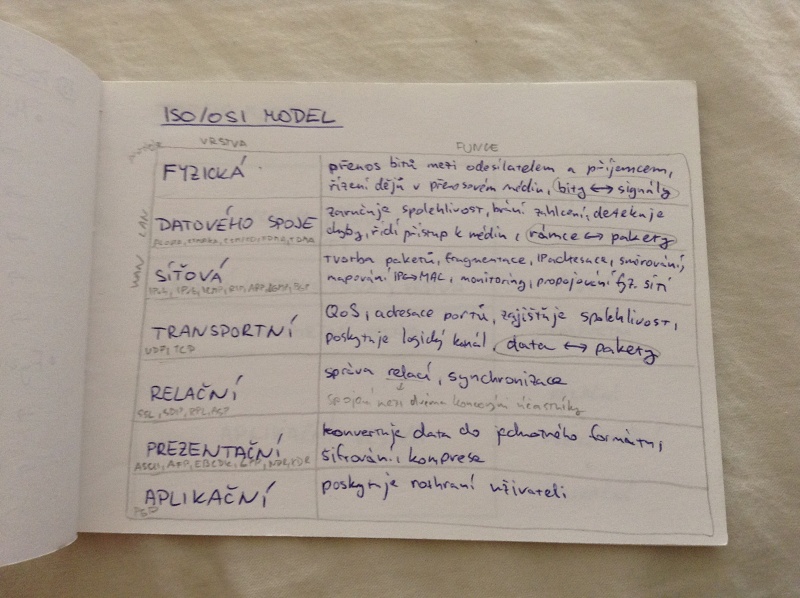 ISO/OSI MODEL
VRSTVA FUNKCE
FYZICKÁ
přenos bitů mezi odesilatelem a příjemcem,
řízení dějů v přenosovém médiu, bity ↔ signály
LAN
DATOVÉHO SPOJE
zaručuje spolehlivost, brání zahlcení, detekuje
chyby, řídí přístup k médiu, rámce ↔ pakety
WAN
SÍŤOVÁ
tvorba paketů, fragmentace, IP adresace, směrování,
mapování IP↔MAC, monitoring, propojování fyz. sítí
TRANSPORTNÍ
UDP, TCP
QoS, adresace portů, zajišťuje spolehlivost,
poskytuje logický kanál, data ↔ pakety
RELAČNÍ
SSL, SDP, RPC,
správa relací, synchronizace
spojení mezi dvěma koncovými účastníky
PREZENTAČNÍ
ASCII, AFP, EBCDIC, XDR
konvertuje data do jednotného formátu,
šifrování, komprese
APLIKAČNÍ
poskytuje rozhraní uživateli